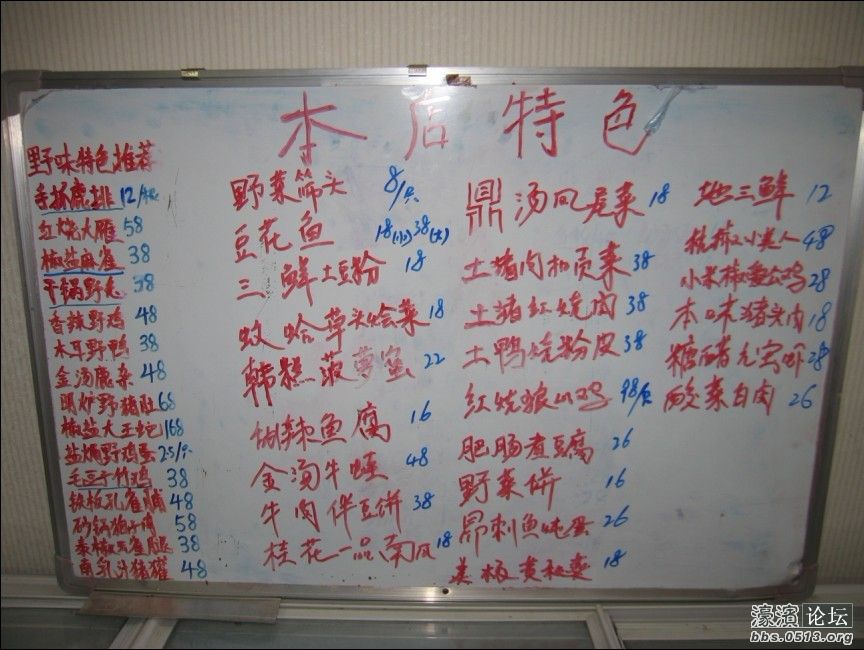 本店特色
野味特色推荐
手抓鹿排 12/根
红烧大雁 58
椒盐麻雀 38
干锅野兔 38
香辣野鸡 48
木耳野鸭 38
金汤鹿杂 48
明炉野猪肚 68
椒盐大王蛇 168
盐焗野鸡蛋 25/
毛豆干竹鸡 38
铁板孔雀脯 48
砂锅狗肉 58
雀腿 38
南乳汁猪獾 48
野菜筛头 8/只
豆花鱼 18(小) 38(大)
三鲜土豆粉 18
蚊蛤草头烩菜 18
韩糕菠萝蜜 22
糊辣鱼腐 16
金汤牛蛙 48
牛肉伴豆饼 38
桂花一品南瓜 18
鼎汤凤尾菜 18
土猪肉扣贡菜 38
土猪红烧肉 38
土鸭烧粉皮 38
红烧狼山鸡 98/只
肥肠煮豆腐 26
野菜饼 16
昂刺鱼炖蛋 26
18
地三鲜 12
48
小米椒公鸡 28
本味猪头肉 18
糖醋元宝虾 28
酸菜白肉 26
濠滨论坛
bbs.0513.org